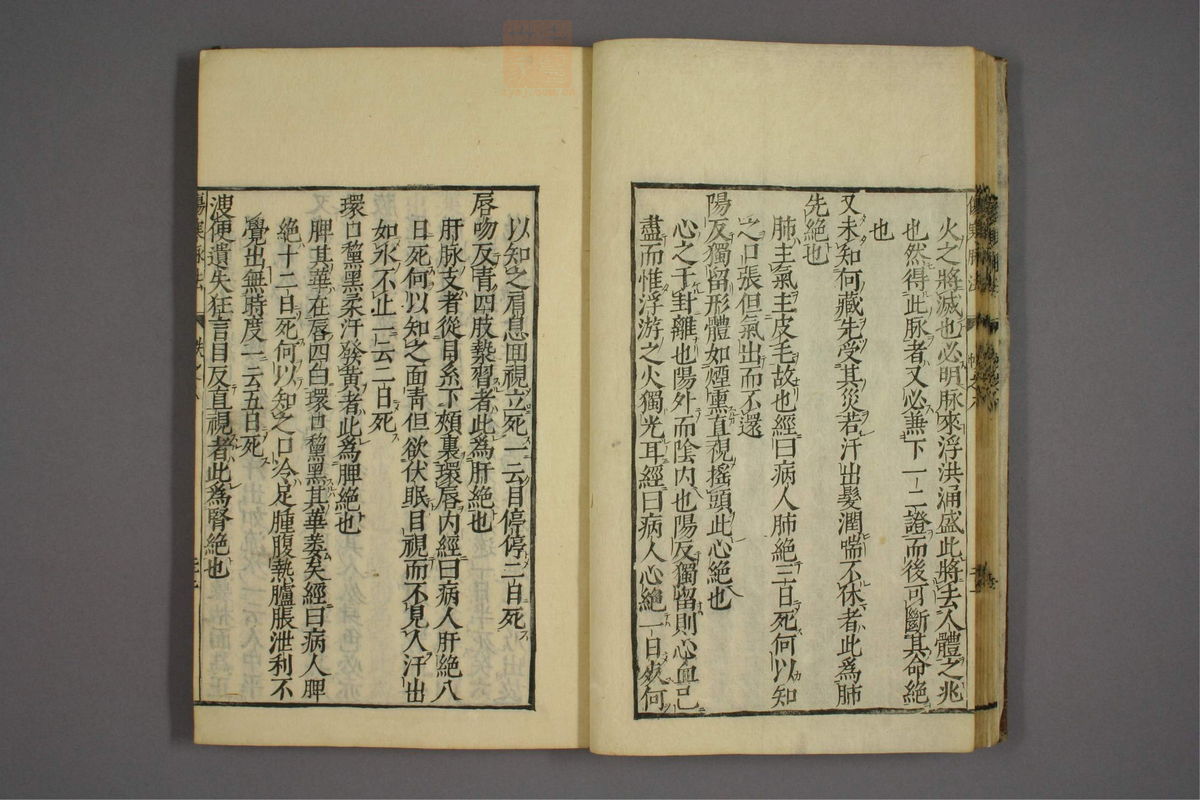 火之將滅也必明脉來浮洪涌盛此將去人體之兆
也然得此脉者又必兼下一二證而後可斷其命絕
也
又未知何藏先受其災若汗出髮潤喘不休者此為肺
先絕也
肺主氣主皮毛故也經曰病人肺絕三日死何以知
之口張但氣出而不還
陽反獨留形體如煙熏直視搖頭此心絕也
心之于卦離也陽外而陰内也陽反獨留則心血已
盡而惟浮游之火獨光耳經曰病人心絕一日死何
以知之肩息回視立死一云目停停二日死
唇吻反青四肢漐習者此為肝絕也
肝脉支者從目系下頰裏環唇内經曰病人肝絕八
日死何以知之面青但欲伏眠目視而不見人汗出
如水不止一云二日死
環口黧黑柔汗發黃者此為脾絕也
脾其華在唇四白環口黧黑其華萎矣經曰病人脾
絕十二日死何以知之口冷足腫腹熱臚脹泄利不
覺出無時度一云五日死
溲便遺失狂言目反直視者此為腎絕也
傷寒脉法